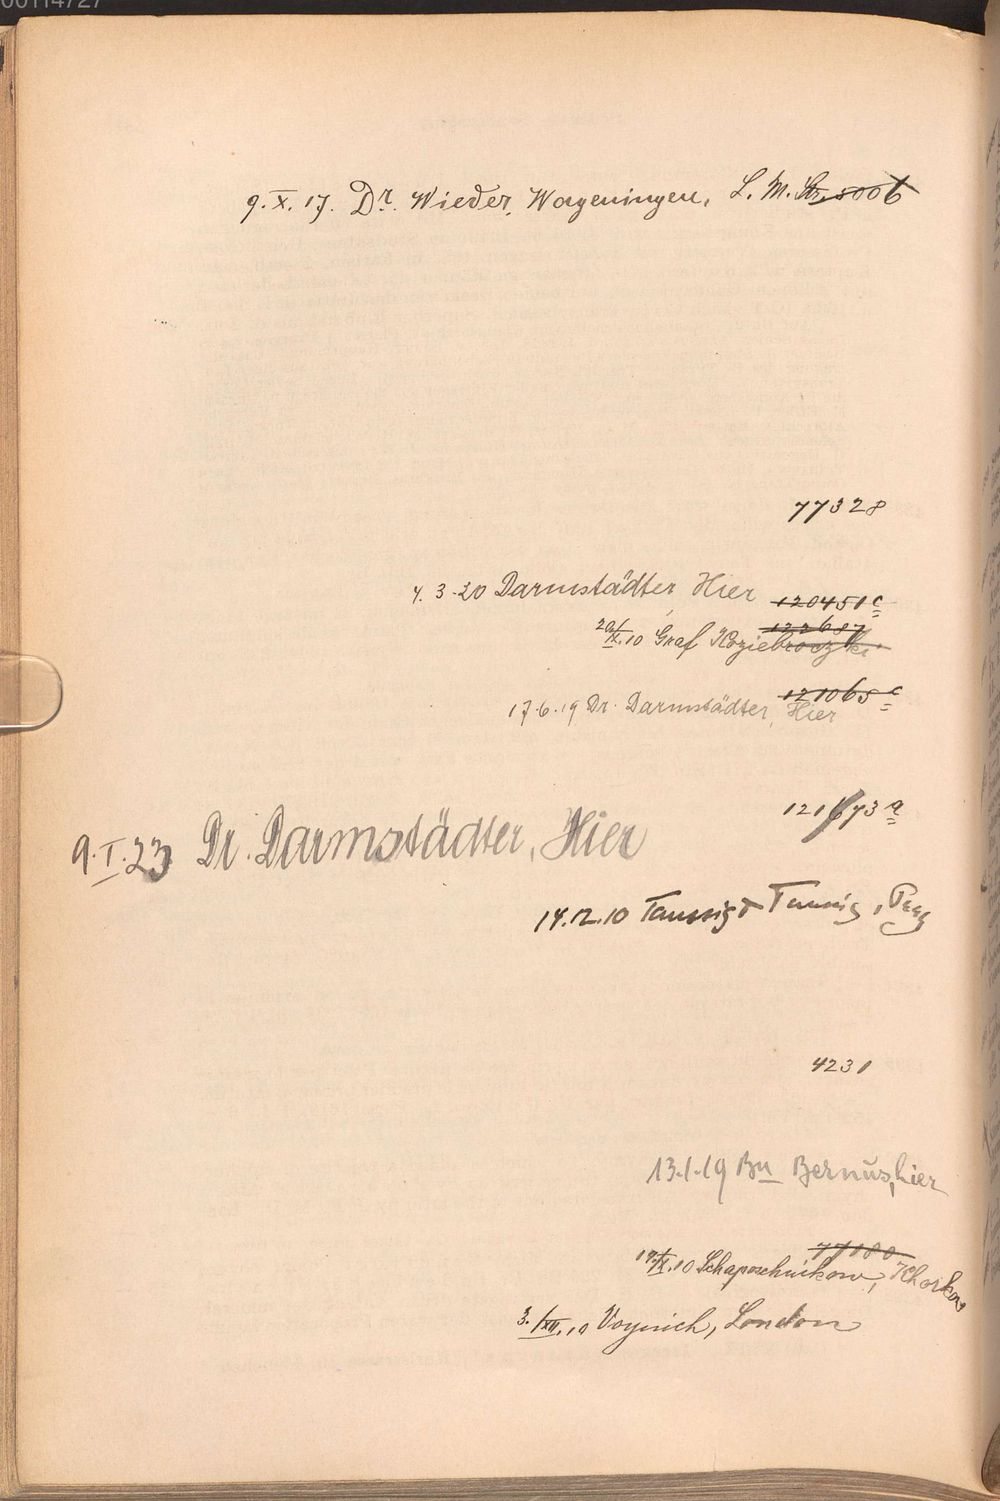 00114727
9. X. 17. Dr. Wieder, Wageningen, L. M. Str. 5006
77328
4. 3. 20 Darmstädter Hier 120451 c
122687
20/X. 10 Graf Koziebrodzki
121065 c
17. 6. 19 Dr. Darmstädter, Hier
121673 a
9. I. 23 Dr. Darmstädter, Hier
14. 12. 10 Taussig & Taussig, Prag
4231
13. 1. 19 Bn Bernus, hier
77180
19/IX. 10 Schaposchnikow, Kharkow
3. /XII. 10 Voynich, London